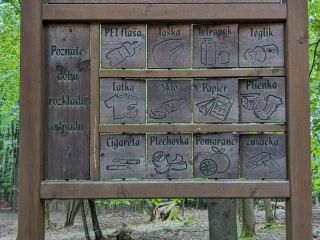 Poznáte
dobu
rozkladu
odpadu
?
PET fľaša
Taška
Tetrapak
Téglik
Látka
Sklo
Papier
Plienka
Cigareta
Plechovka
Pomaranč
Žuvačka